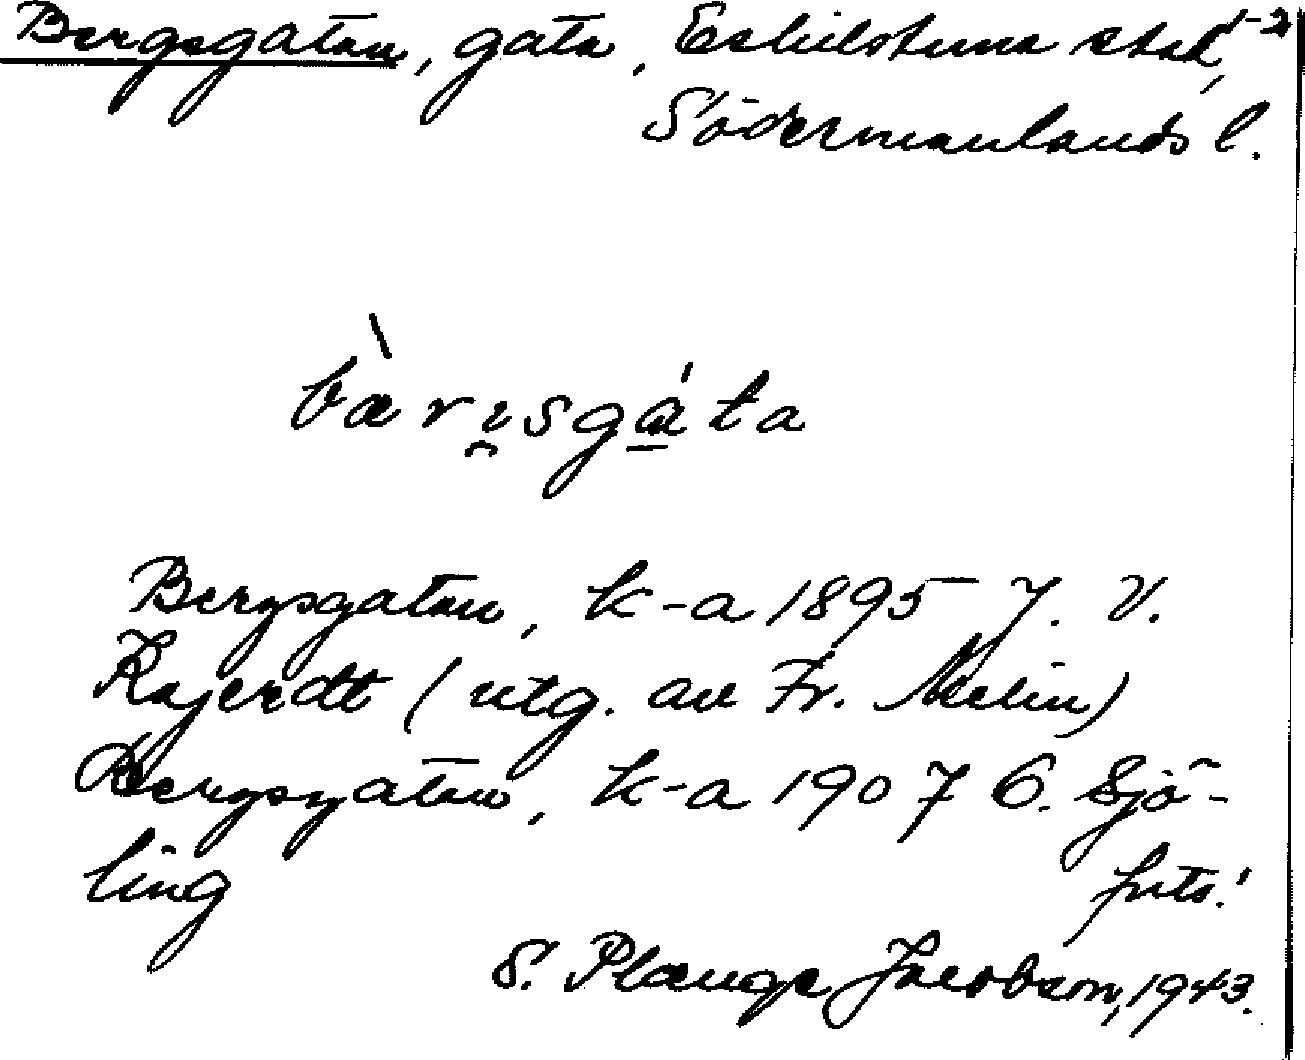 Bergsgatan, gata, Eskilstuna stad, 1-2
Södermanlands l.
bær​ɪsga̱ta
Bergsgatan, k-a 1895 J. V.
Kajerdt (utg. av Fr. Melin)
Bergsgatan, k-a 1907 C. Sjö-
ling forts.!
S. Plænge Jacobson, 1943.